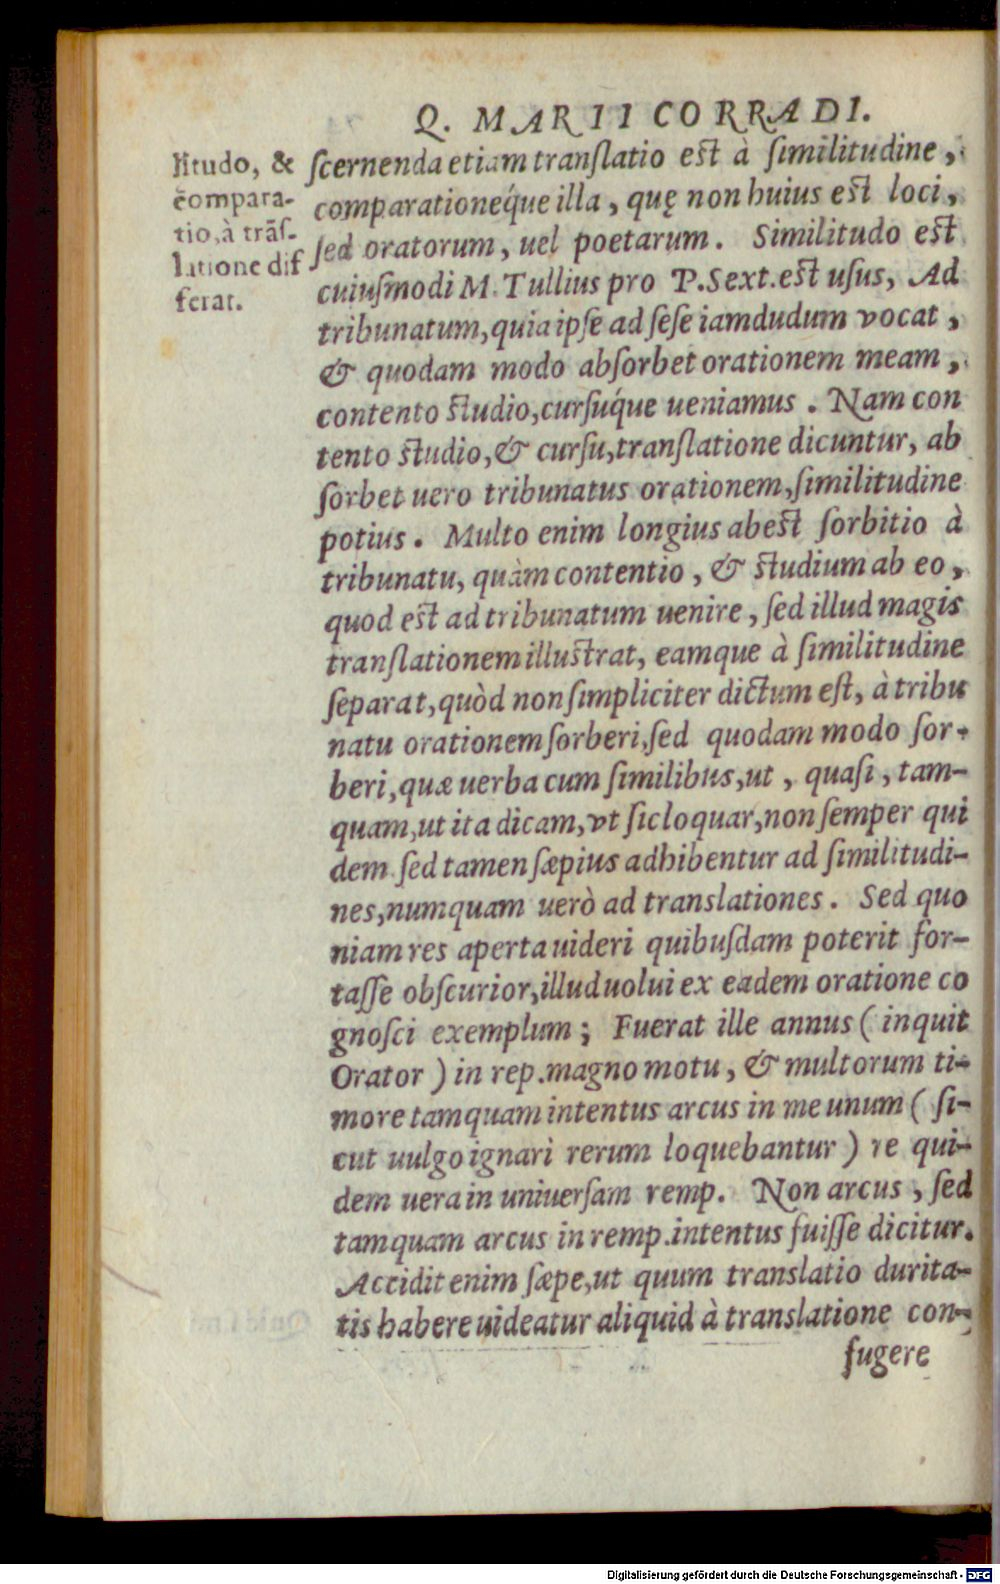 Q. MARII CORRADI.
litudo, &
cōmpara-
tio, à trāſ-
latione dif
ferat.
ſcernenda etiam tranſlatio eſt à ſimilitudine,
comparationeq́ue illa, quę non huius eſt loci,
ſed oratorum, uel poetarum. Similitudo eſt
cuiuſmodi M. Tullius pro P. Sext. eſt uſus, Ad
tribunatum, quia ipſe ad ſeſe iamdudum vocat,
& quodam modo abſorbet orationem meam,
contento ſtudio, curſuq́ue ueniamus. Nam con
tento ſtudio, & curſu, tranſlatione dicuntur, ab
ſorbet uero tribunatus orationem, ſimilitudine
potius. Multo enim longius abeſt ſorbitio à
tribunatu, quàm contentio, & ſtudium ab eo,
quod eſt ad tribunatum uenire, ſed illud magis
tranſlationem illuſtrat, eamque à ſimilitudine
ſeparat, quòd non ſimpliciter dictum eſt, à tribu
natu orationem ſorberi, ſed quodam modo ſor-
beri, quæ uerba cum ſimilibus, ut, quaſi, tam-
quam, ut ita dicam, vt ſic loquar, non ſemper qui
dem ſed tamen ſæpius adhibentur ad ſimilitudi-
nes, numquam uerò ad translationes. Sed quo
niam res aperta uideri quibuſdam poterit for-
taſſe obſcurior, illud uolui ex eadem oratione co
gnoſci exemplum; Fuerat ille annus (inquit
Orator) in rep. magno motu, & multorum ti-
more tamquam intentus arcus in me unum (ſi-
cut uulgo ignari rerum loquebantur) re qui-
dem uera in uniuerſam remp. Non arcus, ſed
tamquam arcus in remp. intentus fuiſſe dicitur.
Accidit enim ſæpe, ut quum translatio durita-
tis habere uideatur aliquid à translatione con-
fugere
Digitalisierung gefördert durch die Deutsche Forschungsgemeinschaft - DFG